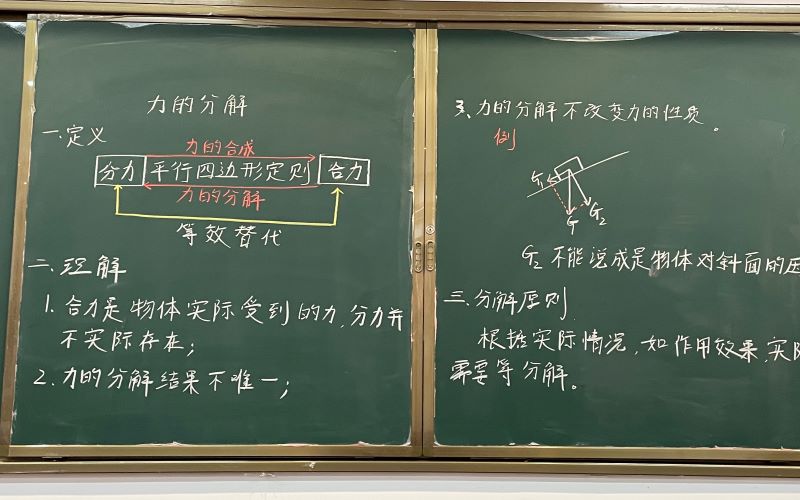 力的分解
一.定义
力的合成
分力 平行四边形定则 合力
力的分解
等效替代
二.理解
1.合力是物体实际受到的力,分力并
不实际存在;
2.力的分解结果不唯一;
3.力的分解不改变力的性质。
例
G1
G
G2
G2不能说成是物体对斜面的压
三.分解原则
根据实际情况,如作用效果,实际
需要等分解。